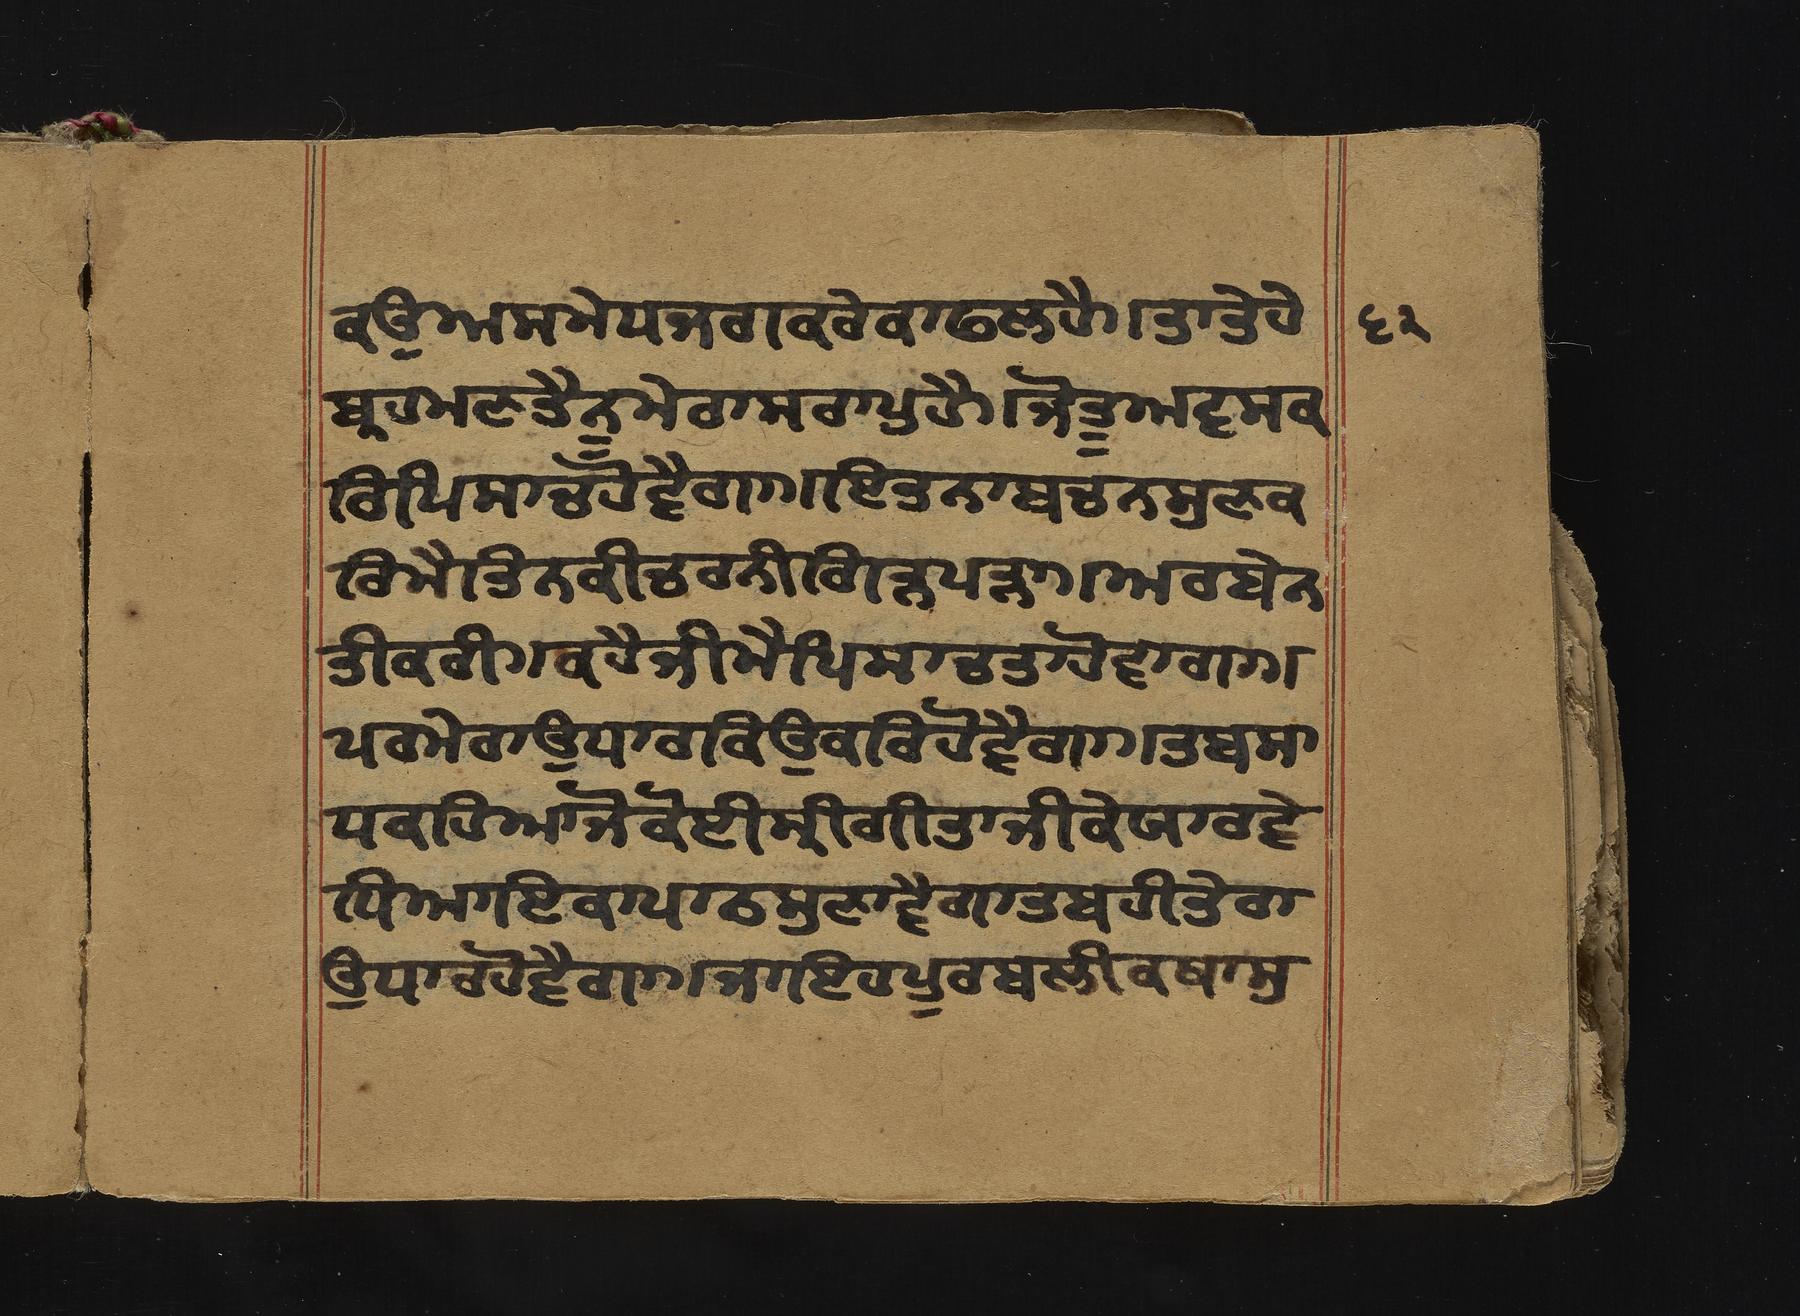 ਕਉਅਸਮੇਧਜਗਕਰੇਕਾਫਲਹੈ।ਤਾਤੇਹੇ ੬੨
ਬ੍ਰਹਮਣਤੈਨੂਮੇਰਾਸਰਾਪੁਹੈ।ਜੋਤੂਅਦ੍ਰਸਕ
ਰਿਪਿਸਾਚਹੋਵੈਗਾ।ਇਤਨਾਬਚਨਸੁਣਕ
ਰਿਮੈਤਿਨਕੀਚਰਨੀਗਿੜਪੜਾ।ਅਰਬੇਨ
ਤੀਕਰੀ।ਕਹੈਜੀਮੈਪਿਸਾਚਤਾਹੋਵਾਗਾ।
ਪਰਮੇਰਾਉਧਾਰਕਿਉਕਰਿਹੋਵੈਗਾ।ਤਬਸਾ
ਧਕਹਿਆਜੋਕੋਈਸ੍ਰੀਗੀਤਾਜੀਕੇਯਾਰਵੇ
ਧਿਆਇਕਾਪਾਠਸੁਣਾਵੈਗਾਤਬਹੀਤੇਰਾ
ਉਧਾਰਹੋਵੈਗਾ।ਜਾਇਹਪੁਰਬਲੀਕਥਾਸੁ